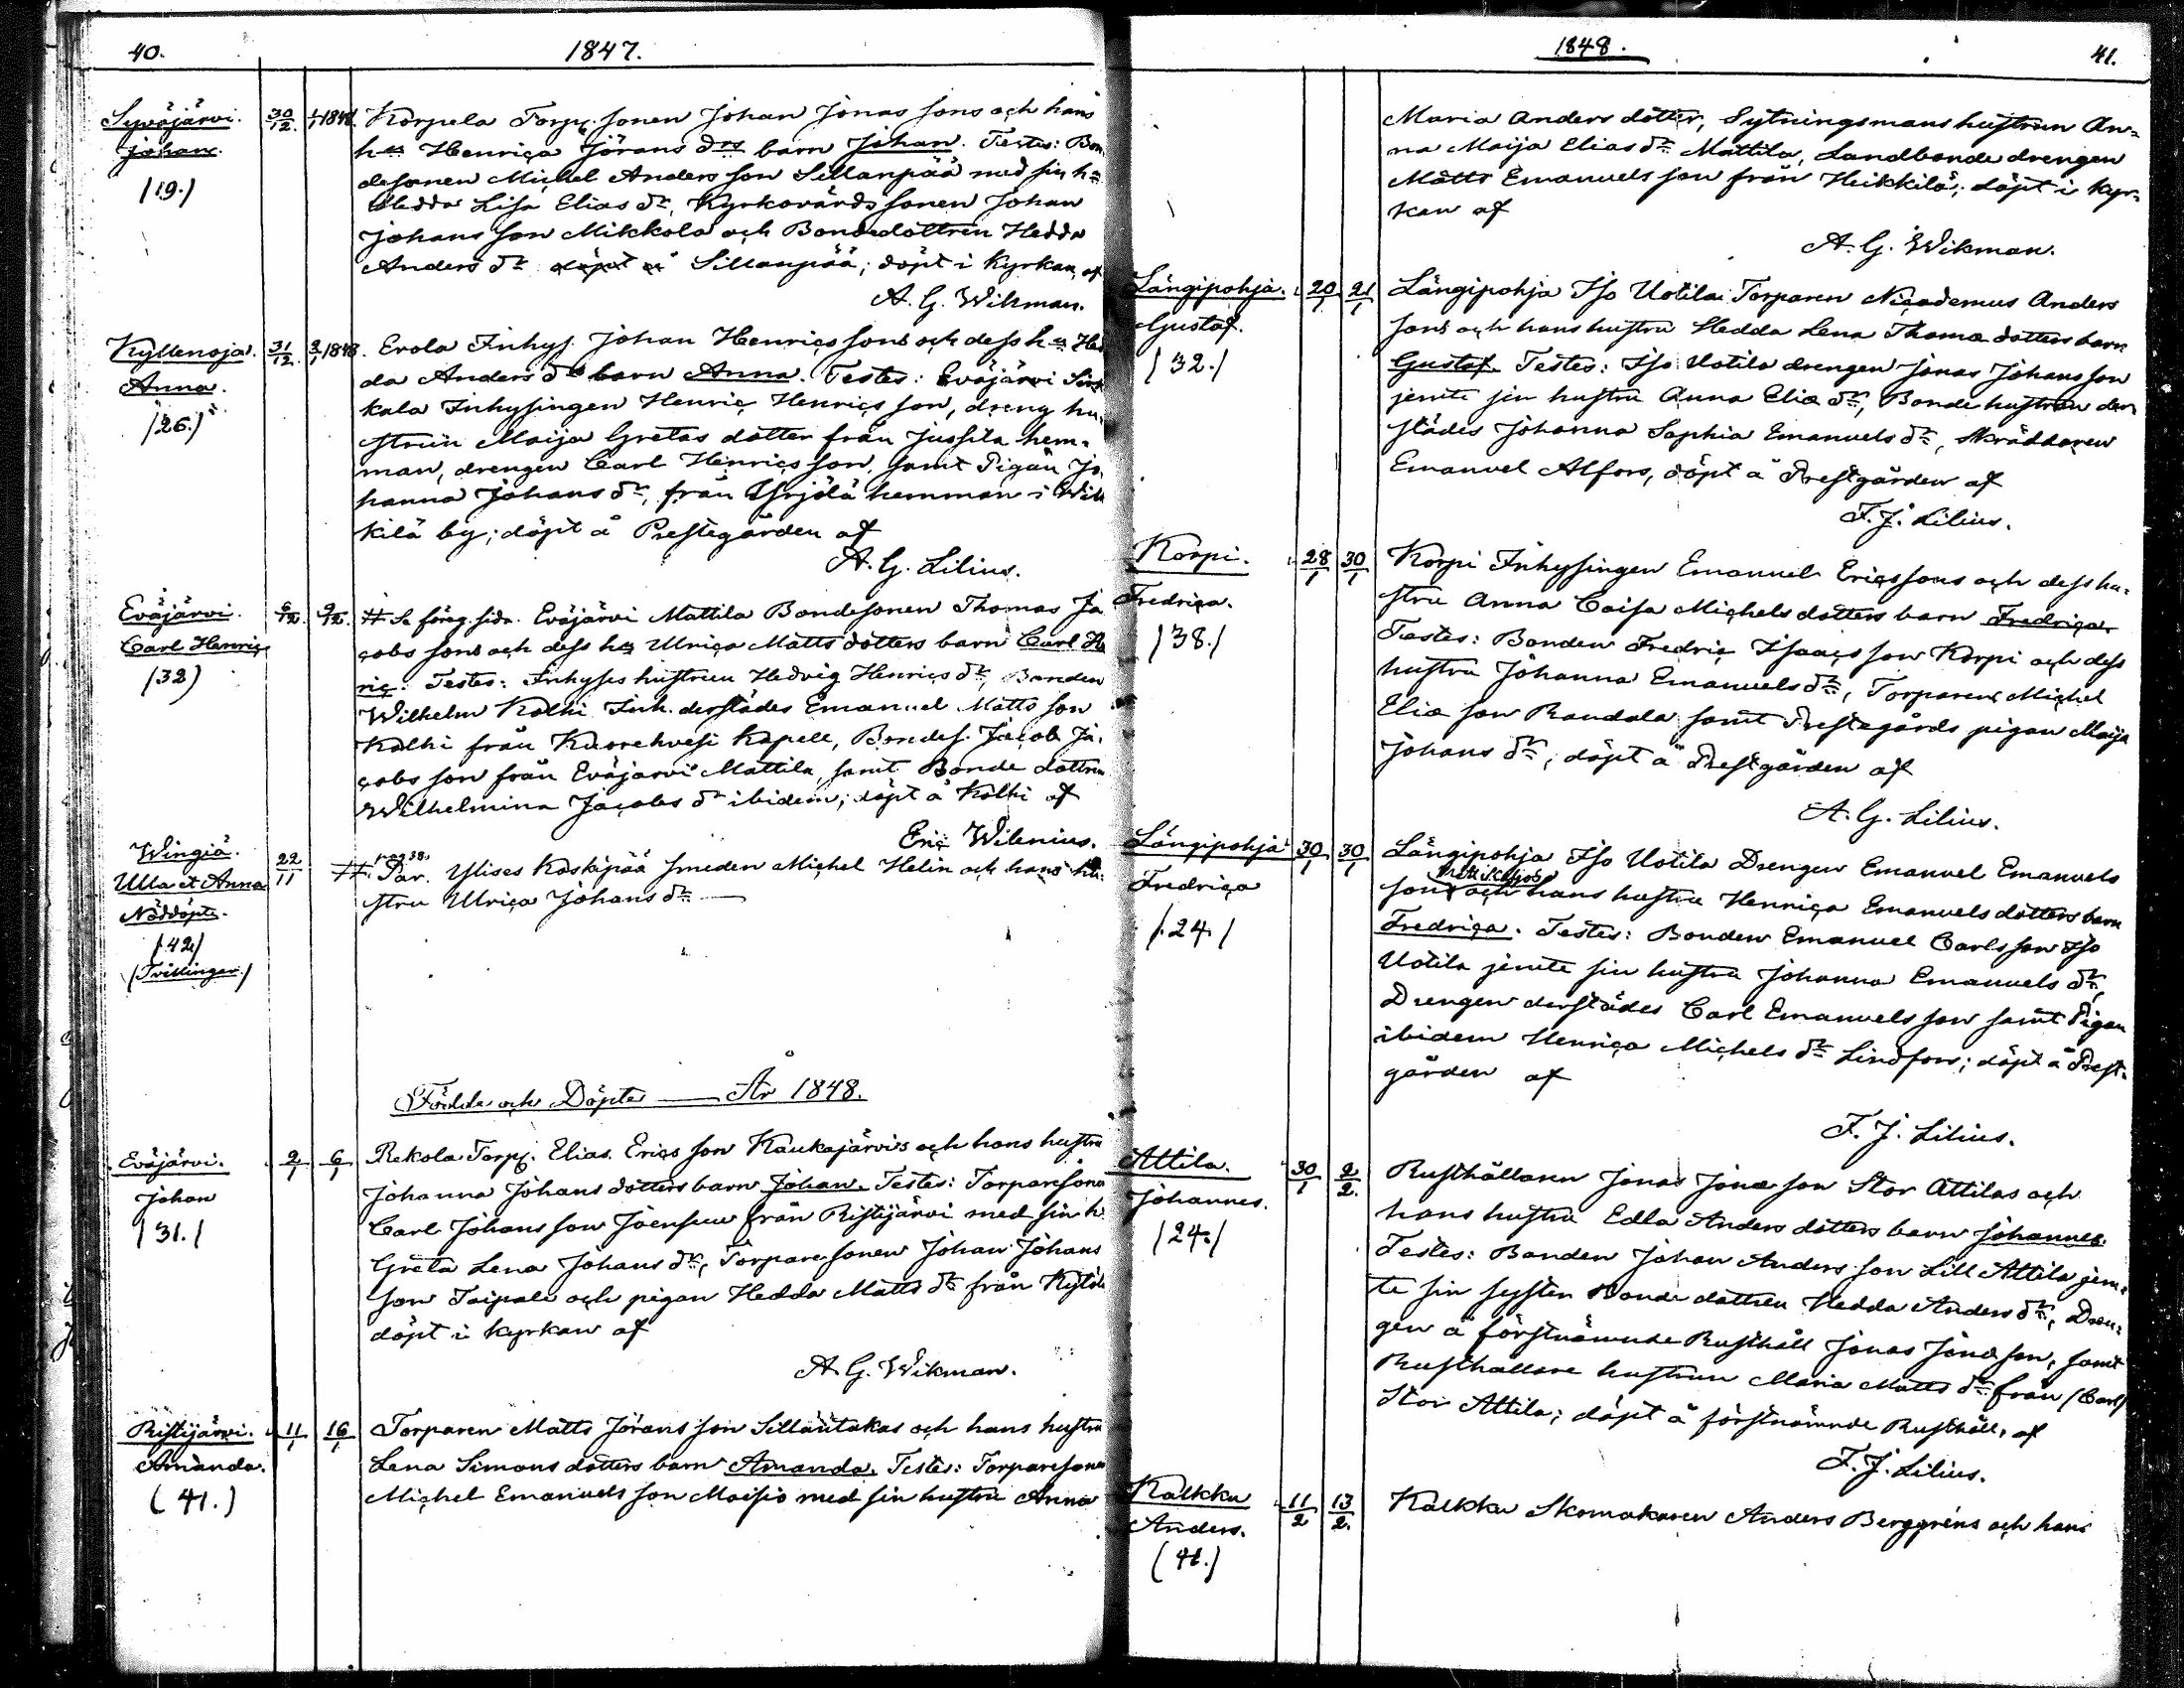 40.
1847.
Syväjärvi.
Johan.
/19./
30/12. 1/1 1848.
Korpela Torp. sonen Johan Jonas sons och hans
hu Henrica Jörans drs barn Johan. Testes: Bon-
desonen Michel Anders son Sillanpää med sin h:u
Hedda Lisa Elias dr, Kyrkovärds sonen Johan
Johans son Mikkola och Bondedottren Hedda
Anders dr Sillanpää; döpt i Kyrkan af
A. G. Wikman.
Kyllenoja.
Anna.
/26./
31/12. 2/1 1848.
Erola Inhys. Johan Henrics sons och dess hu Hed
da Anders drs barn Anna. Testes: Eväjärvi
kala Inhysingen Henric Henrics son, dreng hu-
strun Maija Gretas dotter från Jussila hem-
man, drengen Carl Henrics son, samt Pigan Jo-
hanna Johans dr, från Yrjölä hemman i
kilä by; döpt å Prestegården af
A. G. Lilius.
Eväjärvi.
Carl Henric
/32)
6/12. 9/12.
# Se föreg. sida. Eväjärvi Mattila Bondesonen Thomas Ja
cobs sons och dess hu Ulrica Matts dotters barn Carl He
ric. Testes: Inhyses hustrun Hedvig Henrics dr, Bonden
Wilhelm Kolhi Inh. derstädes Emanuel Matts son
Kolhi från Kuorehvesi Kapell, Bondes. Jacob Ja-
cobs son från Eväjärvi Mattila, samt Bonde dottren
Wilhelmina Jacobs dr ibidem; döpt å Kolhi af
Eric Wilenius.
Wingiä.
Ulla et Anna
Nöddöpte.
/42/
/Tvillingar./
22/11
# Par. Ylises Koskipää smeden Michel Helin och hans hu-
stru Ulrica Johans dr
Födde och Döpte — År 1848.
Eväjärvi.
Johan
/31./
2/1 6/1
Rekola Torp. Elias Erics son Kaukajärvis och hans hustru
Johanna Johans dotters barn Johan. Testes: Torparesonen
Carl Johans son Joensuu från Ristijärvi med sin h.
Greta Lena Johans dr, Torparesonen Johan Johans
son Taipale och pigan Hedda Matts dr från
döpt i kyrkan af
A. G. Wikman.
Ristijärvi.
Amanda.
(41.)
11/1 16/1
Torparen Matts Jörans son Sillantakas och hans hustru
Lena Simons dotters barn Amanda. Testes: Torparesonen
Michel Emanuels son Moisio med sin hustru Anna
1848.
41.
Maria Anders dotter, Sytningsmans hustrun An-
na Maija Elias dr Mattila, Landbonde drengen
Matts Emanuels son från Heikkilä; döpt i kyr-
kan af
A. G. Wikman.
Längipohja.
Gustaf.
/32./
20/1 21/1
Längipohja Iso Uotila Torparen Nicodemus Anders
sons och hans hustru Hedda Lena Thomæ dotters barn
Gustaf. Testes: Iso Uotila drengen Jonas Johans son
jemte sin hustru Anna Eliæ dr, Bonde hustrun der-
städes Johanna Sophia Emanuels dr, Skräddaren
Emanuel Alfors, döpt å Prestgården af
F. J. Lilius.
Korpi.
Fredrica.
/38./
28/1 30/1
Korpi Inhysingen Emanuel Ericssons och dess hu-
stru Anna Caisa Michels dotters barn Fredrica.
Testes: Bonden Fredric Isaacs son Korpi och dess
hustru Johanna Emanuels dr, Torparen Michel
Eliæ son Randala samt Prestegårds pigan Maija
Johans dr; döpt å Prestgården af
A. G. Lilius.
Längipohja
Fredrica
/24./
30/1 30/1
Längipohja Iso Uotila Drengen Emanuel Emanuels
sons och hans hustru Henrica Emanuels dotters barn
Fredrica. Testes: Bonden Emanuel Carls son Iso
Uotila jemte sin hustru Johanna Emanuels dr,
Drengen derstädes Carl Emanuels son samt Pigan
ibidem Henrica Michels dr Lindfors; döpt å Prest-
gården af
F. J. Lilius.
Attila.
Johannes.
/24./
30/1 2/2.
Rusthållaren Jonas Jonæ son Stor Attilas och
hans hustru Edla Anders dotters barn Johannes.
Testes: Bonden Johan Anders son Lill Attila jem-
te sin syster Bonde dottren Hedda Anders dr, Dren-
gen å förstnämnde Rusthåll Jonas Jonæ son, samt
Rusthållare hustrun Maria Matts dr från (Carl)
Stor Attila; döpt å förstnämnde Rusthåll, af
F. J. Lilius.
Kalkku
Anders.
(41.)
11/2 13/2.
Kalkku Skomakaren Anders Berggréns och hans